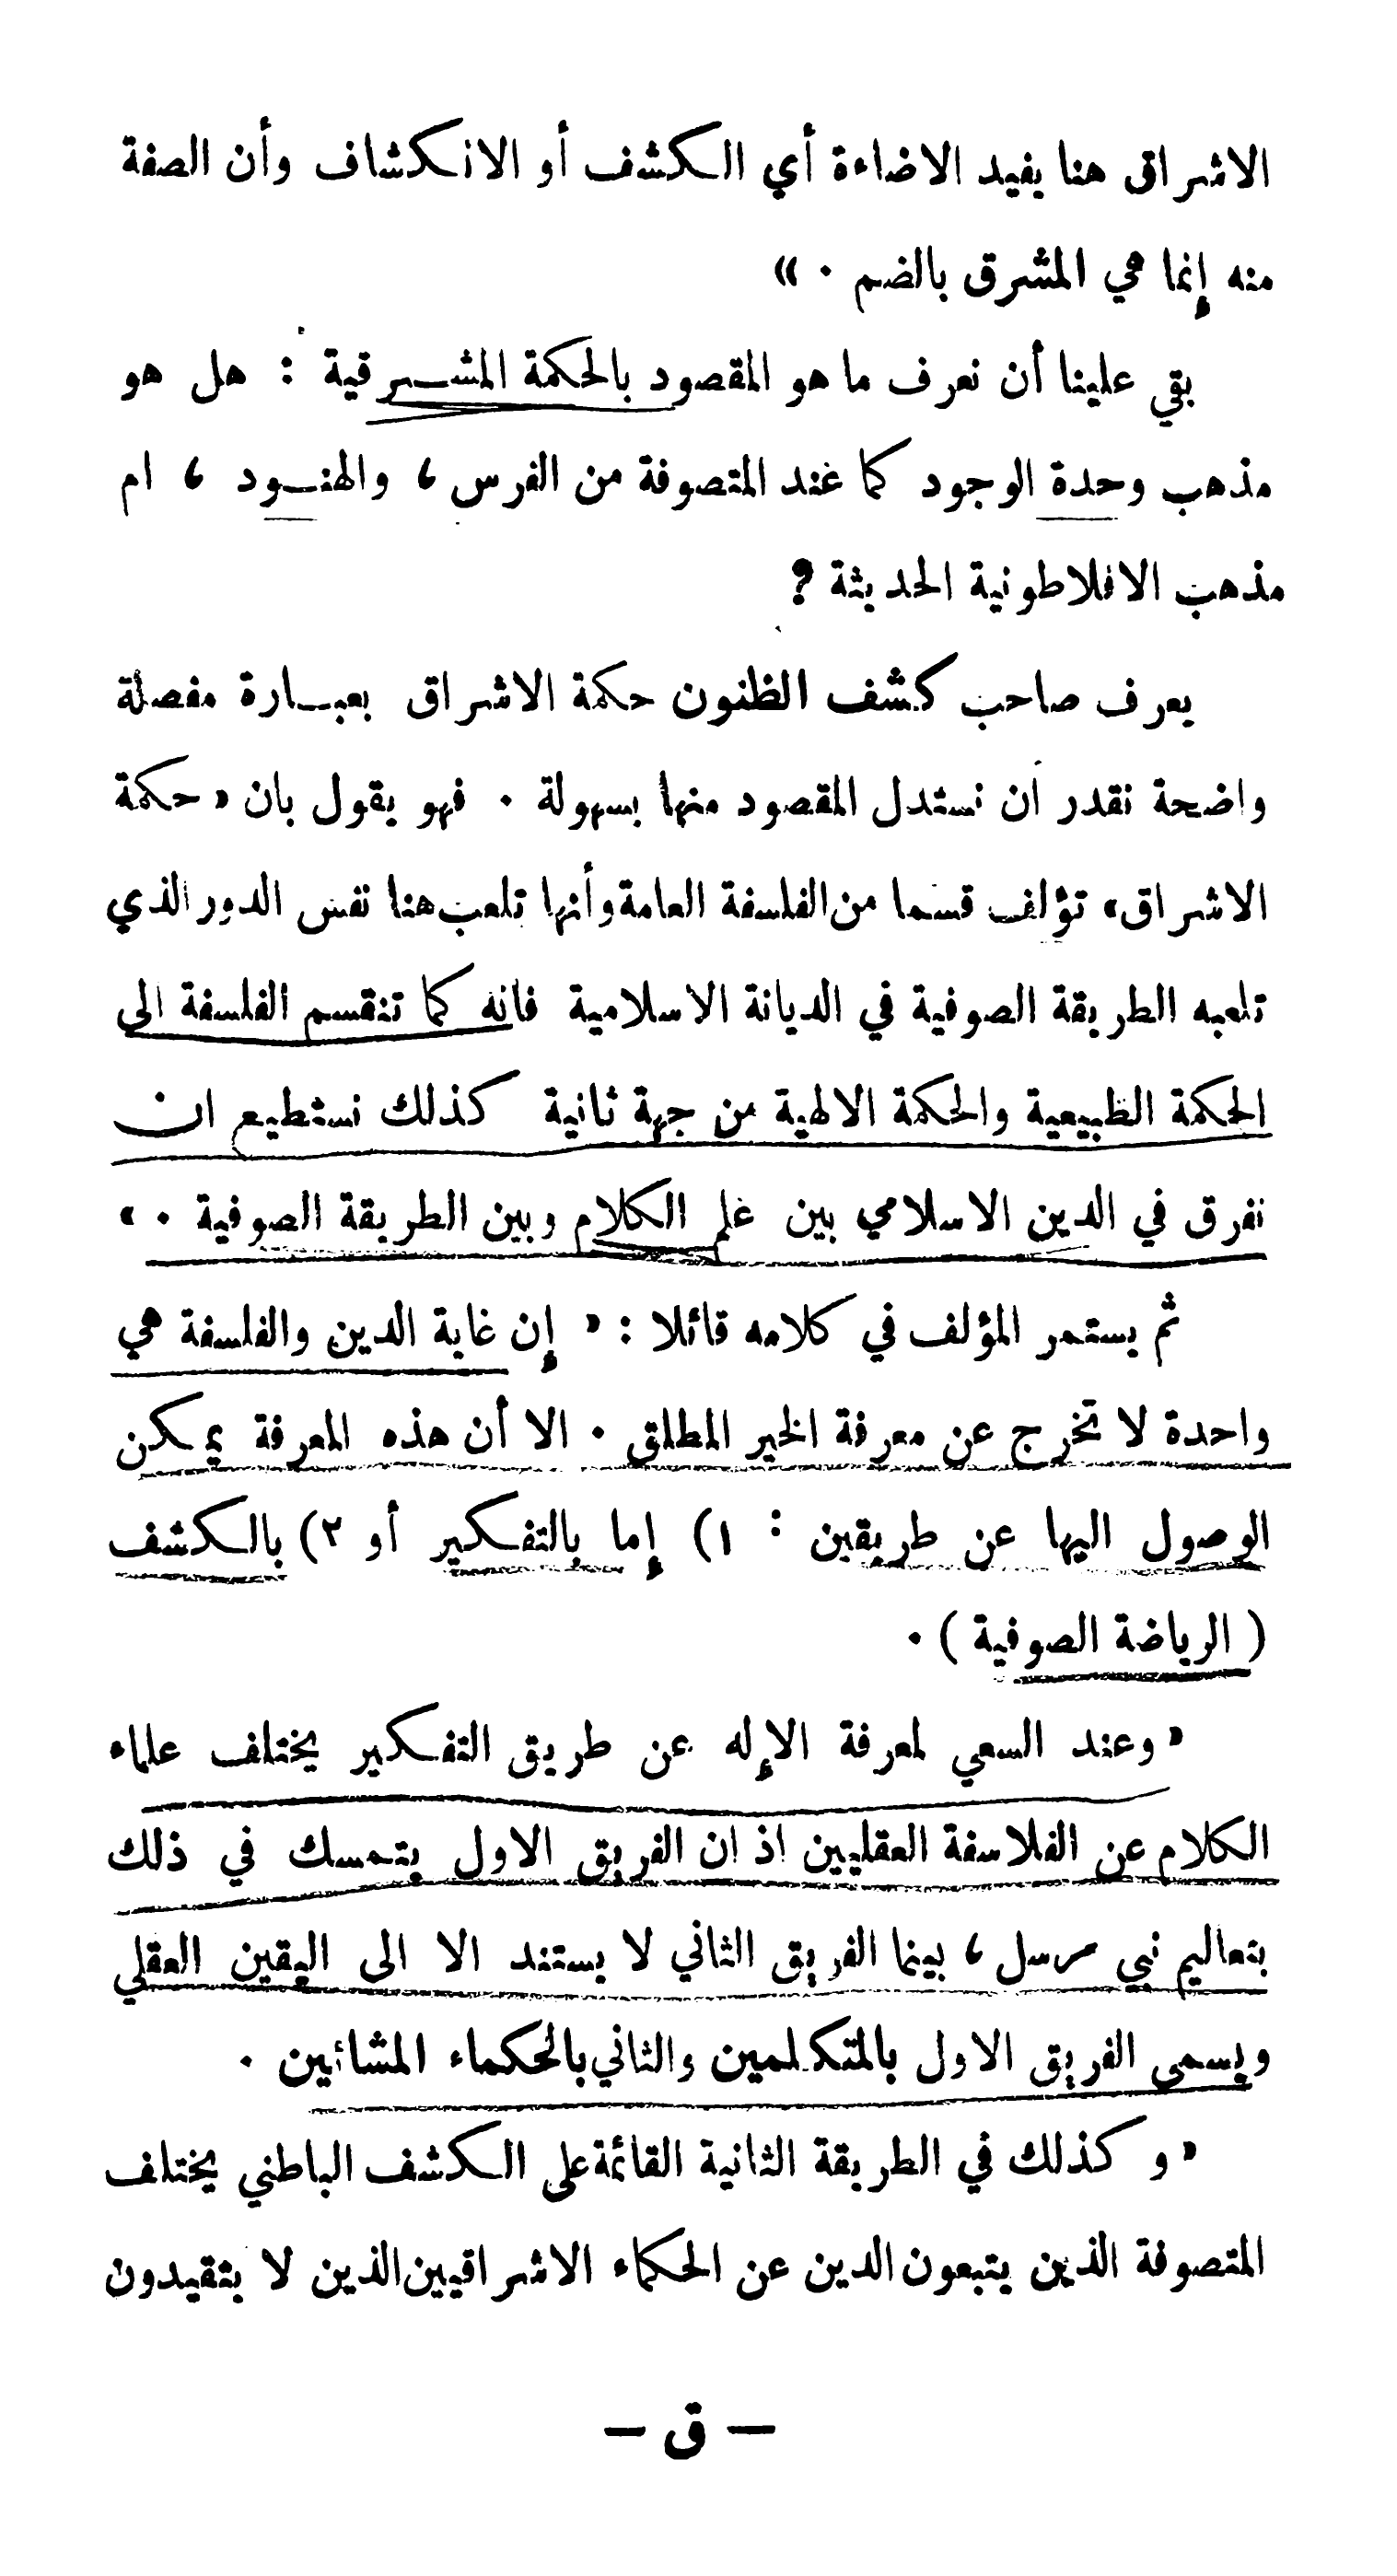 الاشراق هنا يفيد الاضاءة أي الكشف أو الانكشاف وأن الصفة
منه إنما هي المشرق بالضم . »
بقي علينا أن نعرف ما هو المقصود بالحكمة المشرقية : هل هو
مذهب وحدة الوجود كما عند المتصوفة من الفرس ، والهنود ، ام
مذهب الافلاطونية الحديثة ?
يعرف صاحب كشف الظنون حكمة الاشراق بعبارة مفصلة
واضحة نقدر ان نستدل المقصود منها بسهولة . فهو يقول بان « حكمة
الاشراق » تؤلف قسما من الفلسفة العامة وأنها تلعب هنا نفس الدور الذي
تلعبه الطريقة الصوفية في الديانة الاسلامية فانه كما تنقسم الفلسفة الى
الحكمة الطبيعية والحكمة الالهية من جهة ثانية كذلك نستطيع ان
نفرق في الدين الاسلامي بين علم الكلام وبين الطريقة الصوفية . »
ثم يستمر المؤلف في كلامه قائلا : « إن غاية الدين والفلسفة هي
واحدة لا تخرج عن معرفة الخير المطلق . الا أن هذه المعرفة يمكن
الوصول اليها عن طريقين : ١) إما بالتفكير أو ٢) بالكشف
( الرياضة الصوفية ) .
« وعند السعي لمعرفة الإله عن طريق التفكير يختلف علماء
الكلام عن الفلاسفة العقليين اذ ان الفريق الاول يتمسك في ذلك
بتعاليم نبي مرسل ، بينما الفريق الثاني لا يستند الا الى اليقين العقلي
ويسمى الفريق الاول بالمتكلمين والثاني بالحكماء المشائين .
« و كذلك في الطريقة الثانية القائمة على الكشف الباطني يختلف
المتصوفة الذين يتبعون الدين عن الحكماء الاشراقيين الذين لا يتقيدون
— ق —